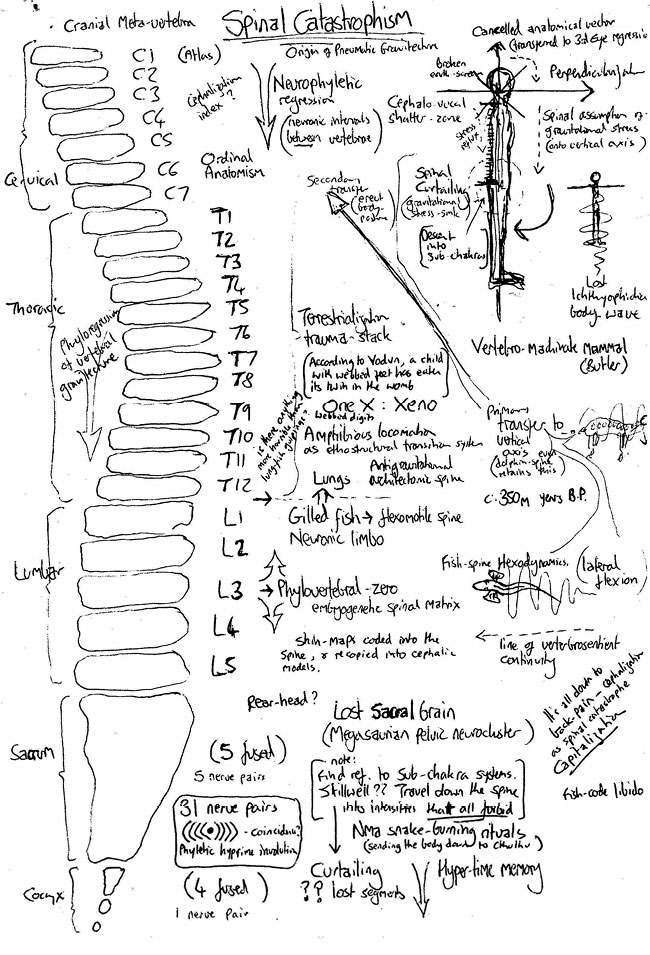 Cranial Meta-vertebra
Spinal Catastrophism
Origin of Pneumatic Gravitecture
Cancelled anatomical vector
(transferred to 3rd Eye regression
Perpendicular
C1 (Atlas)
C2
C3
C4
C5
C6
C7
Cervical
Cephalization
index?
Neurophyletic
regression
(neuronic intervals
between vertebrae)
Ordinal
Anatomism
Broken
Cephalo-vocal
shatter-zone
Spinal assumption of
gravitational stress
(onto vertical axis)
Secondary
transfer
(erect
body
Spinal
Curtailing
(gravitational
stress-sink)
[Descent
into
Sub-chakras]
Lost
body wave
Vertebro-Machinate Mammal
(Butler)
T1
T2
T3
T4
T5
T6
T7
T8
T9
T10
T11
T12
Thoracic
of vertebral
gravitecture
Terrestrialization
trauma-stack
[According to Vodun, a child
with webbed feet has eaten
its twin in the womb]
One X : Xeno
webbed digits
Amphibious locomotion
as ethostructural transition system
Is there anything
more horrible than
lungfish gulpings?
Lungs
Antigravitational
architectonic spine
Primary
transfer to
vertical
axis
dolphin-spine
retains this)
c. 350M years B.P.
L1
L2
L3
L4
L5
Lumbar
Gilled fish → flexomotile spine
Neuronic limbo
→ Phylovertebral-zero
embryogenetic spinal matrix
Skin-maps coded into the
spine, & recopied into cephalic
models.
Fish-spine flexodynamics.
(lateral
flexion)
line of vertebrosentient
continuity
Rear-head?
Sacrum
(5 fused)
5 nerve pairs
Lost Sacral Brain
(Megasaurian pelvic neurocluster)
note:
Find ref. to Sub-chakra systems.
Stillwell?? Travel down the spine
into intensities that all forbid
It's all down to
back-pain - cephalization
as spinal catastrophe
Capitalization
fish-code libido
31 nerve pairs
((((•)))) - coincidence?
Phyletic hyprime involution
Nma snake-burning rituals
(sending the body down to Cthulhu)
Coccyx
(4 fused)
1 nerve pair
Curtailing
?? lost segments
Hyper-time memory